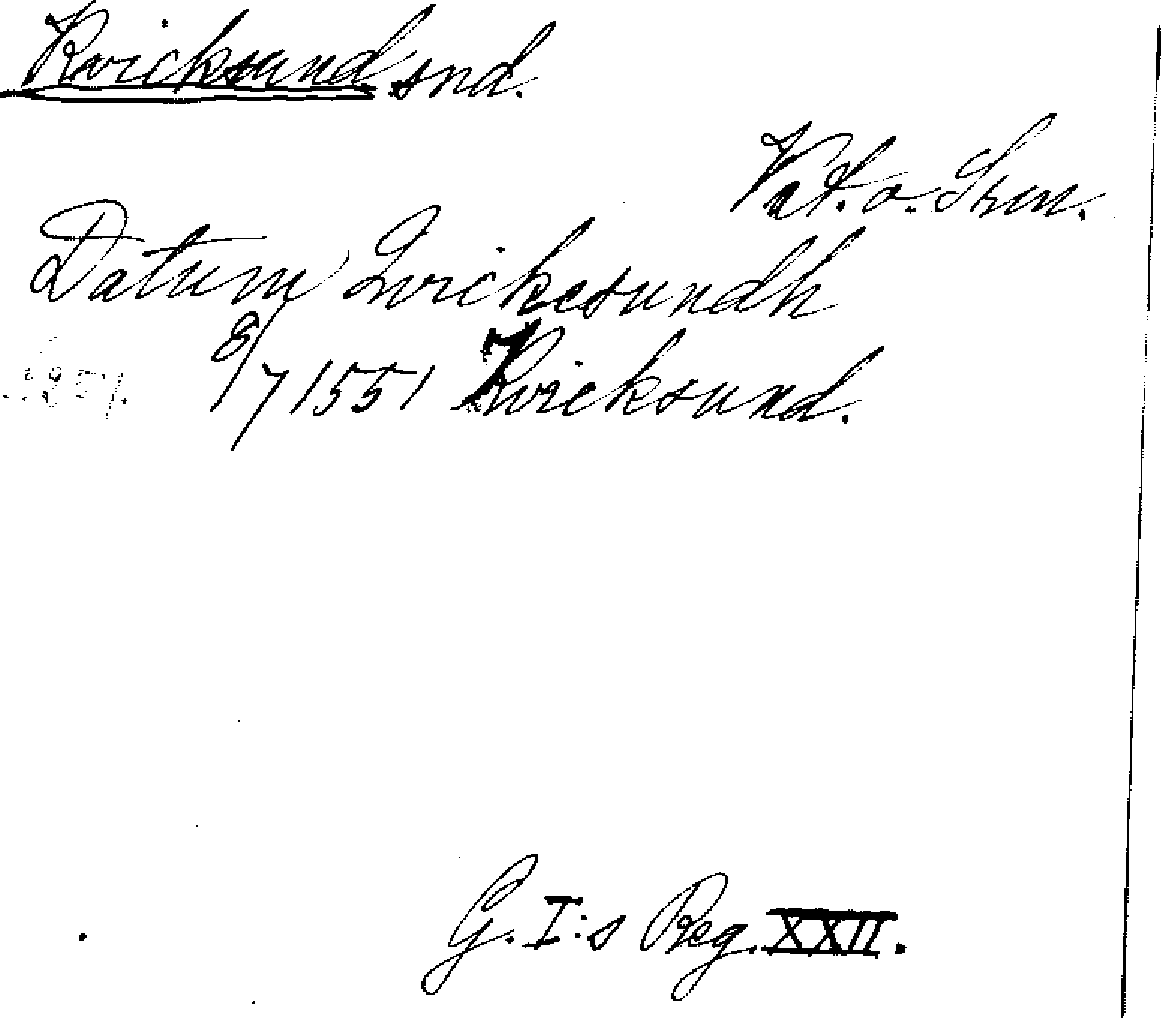 Kvicksund snd.
o.
Datum Qvickesundh
8/7 1551 Kvicksund.
G. I:s Reg. XXII.